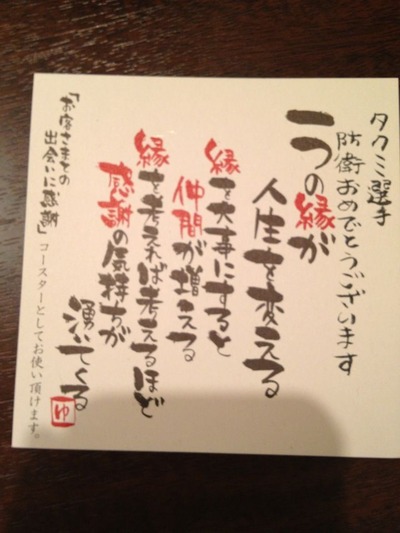 タクミ選手
防衛おめでとうございます
一つの縁が
人生を変える
縁を大事にすると
仲間が増える
縁を考えれば考えるほど
感謝の気持ちが
湧いてくる
ゆ
「お客さまとの
出会いに感謝」
コースターとしてお使い頂けます。